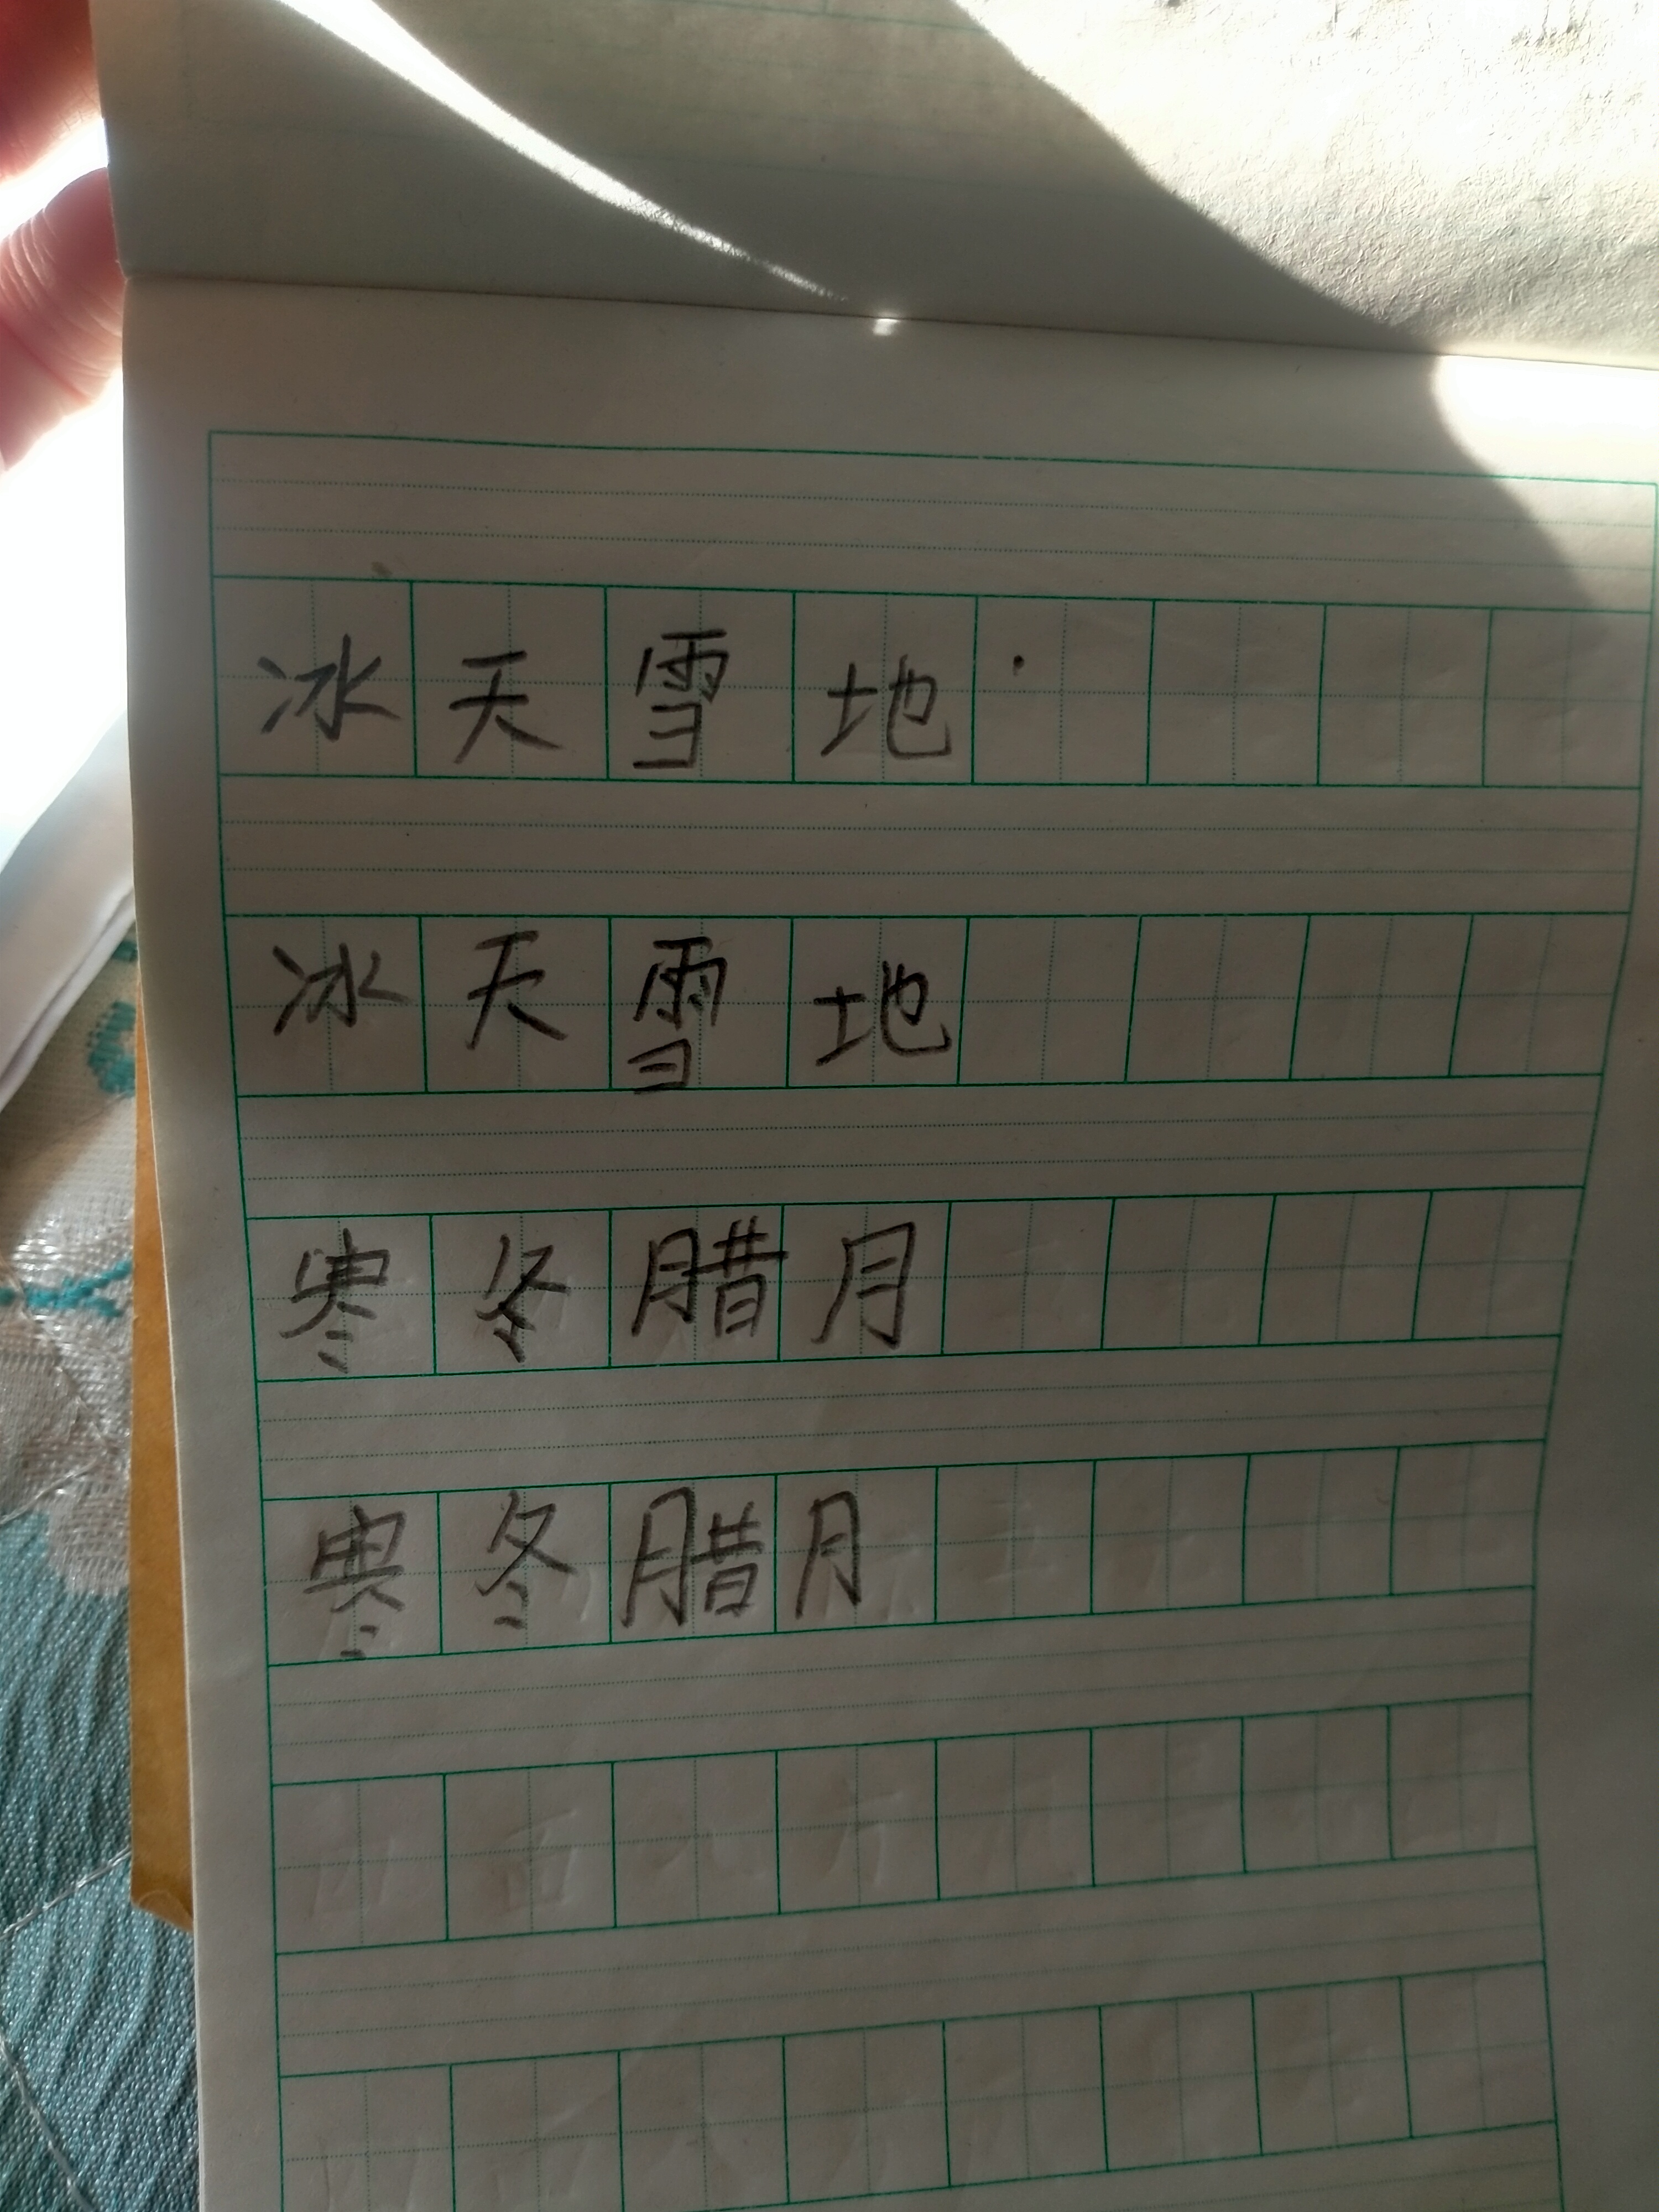 冰天雪地
冰天雪地
寒冬腊月
寒冬腊月